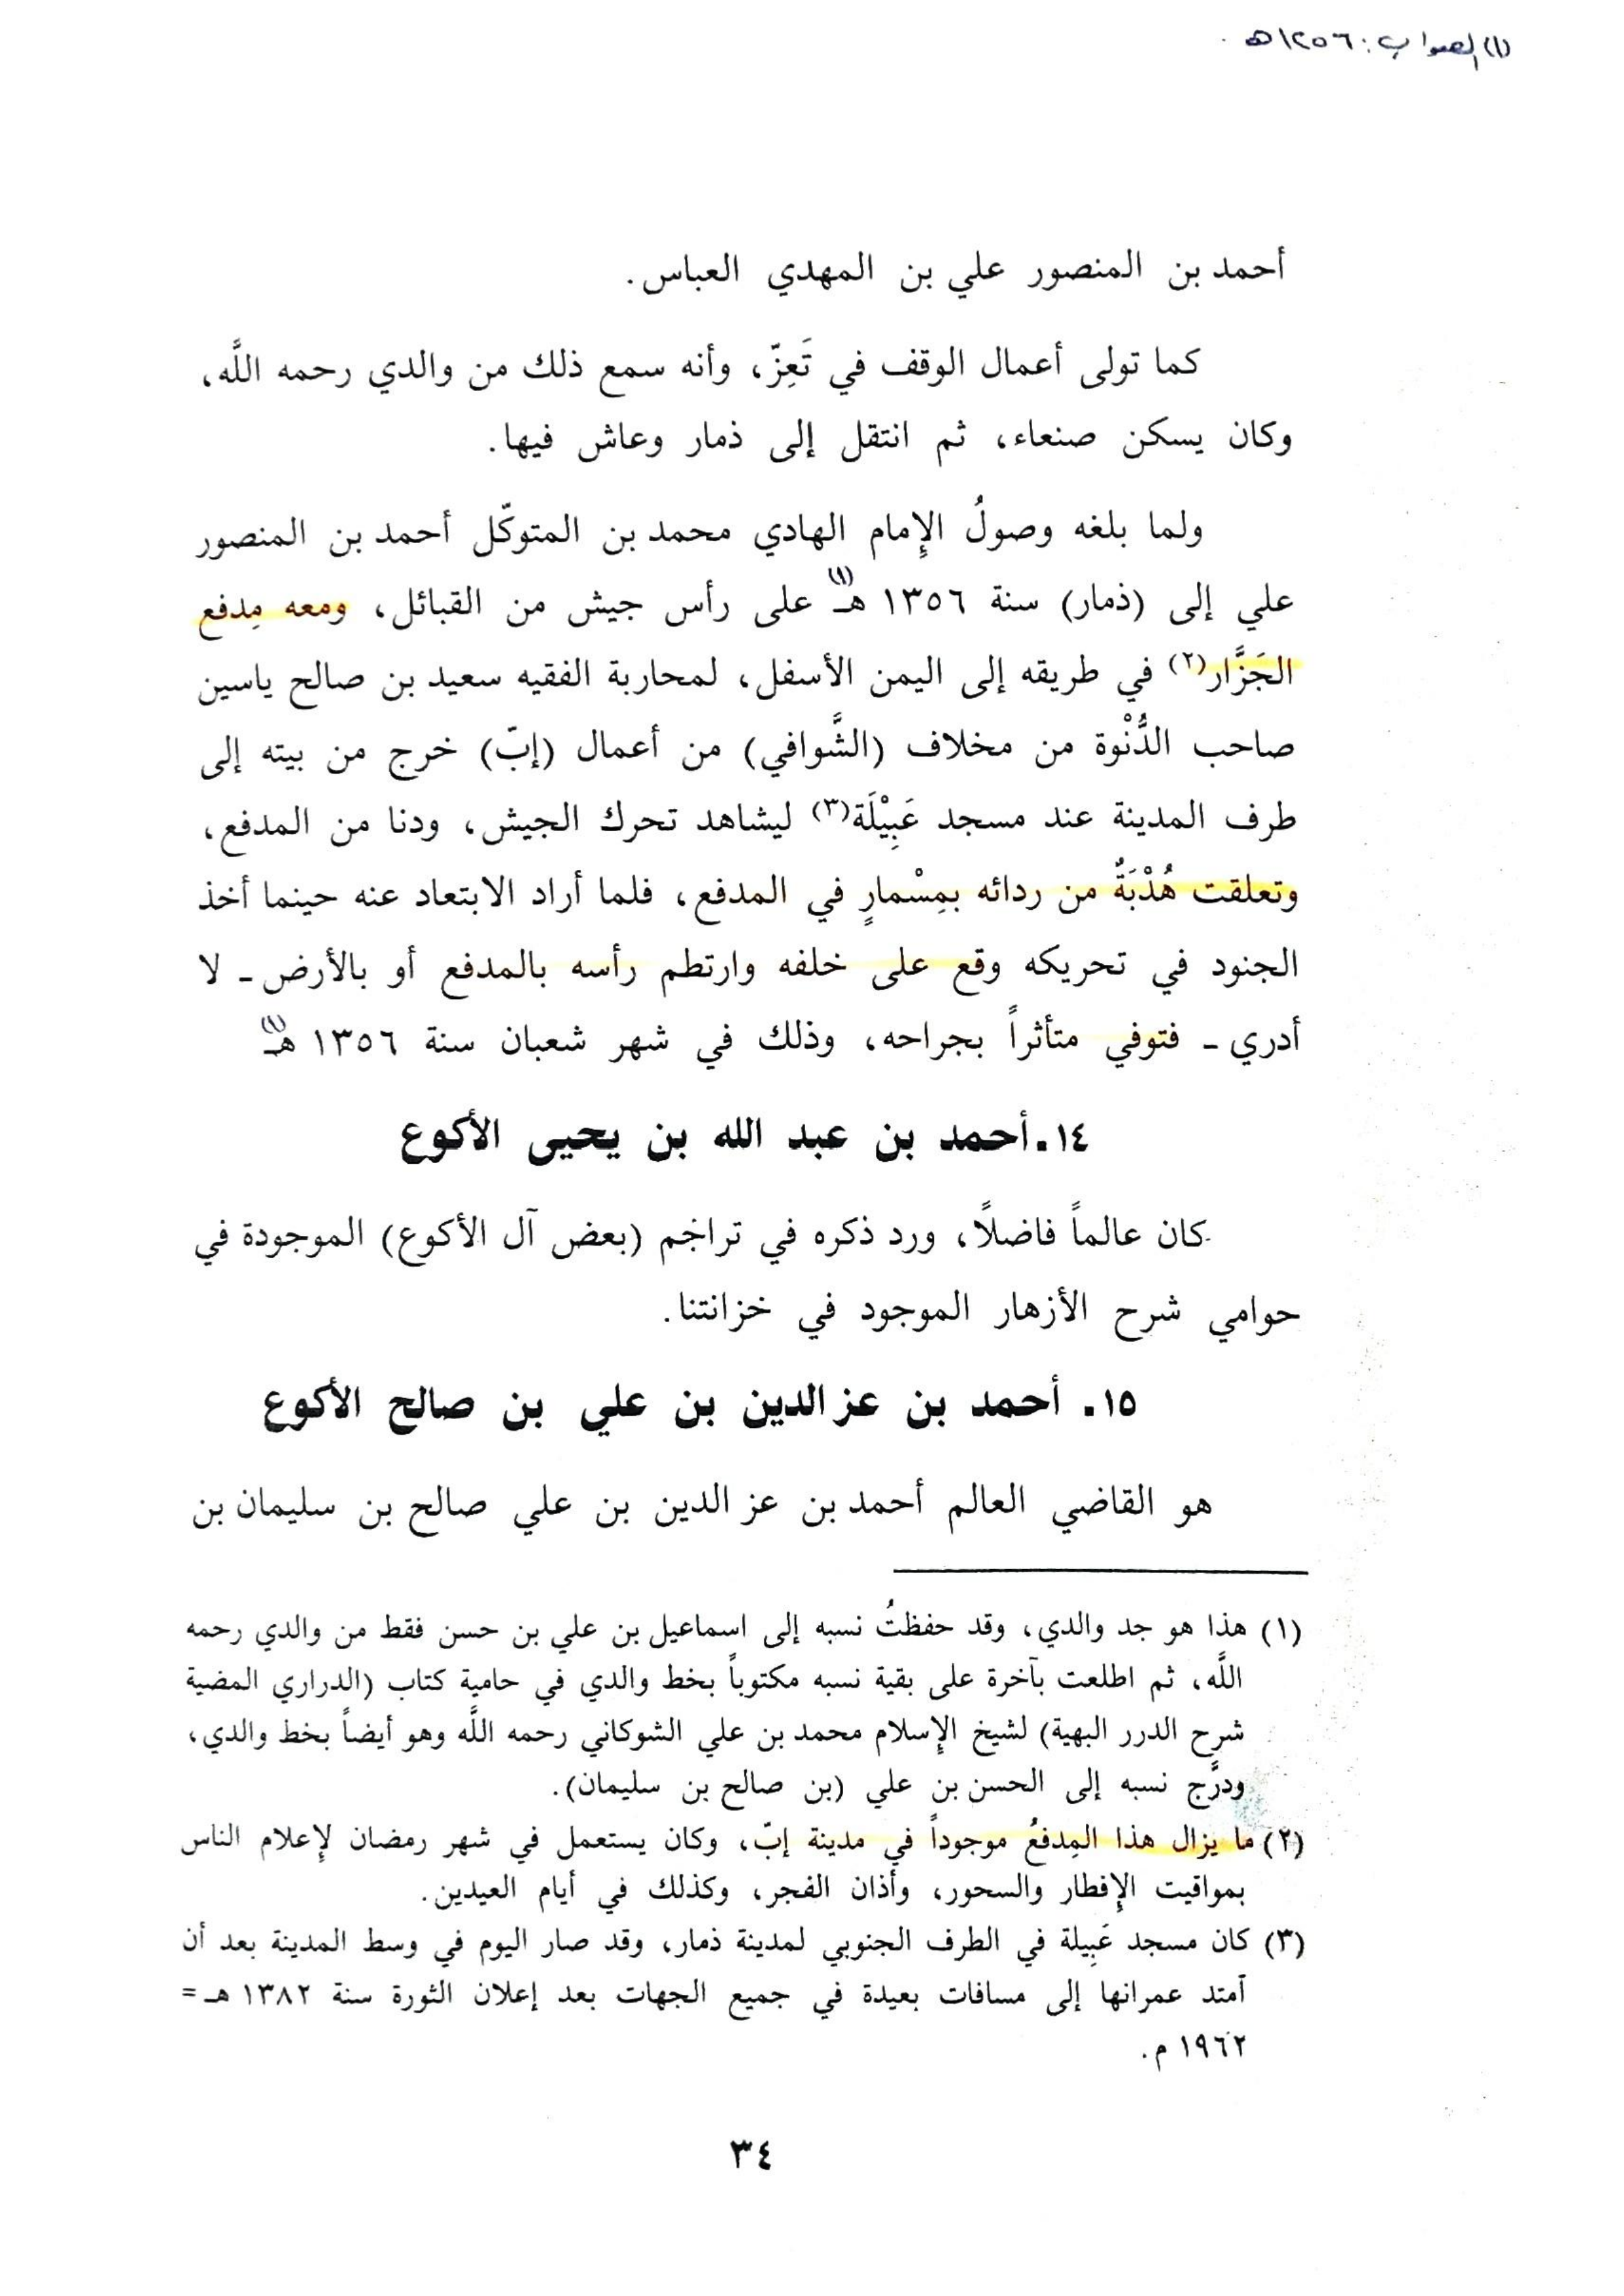 (١) الصواب: ١٢٥٦هـ.
أحمد بن المنصور علي بن المهدي العباس.
كما تولى أعمال الوقف في تَعِزّ، وأنه سمع ذلك من والدي رحمه اللَّه،
وكان يسكن صنعاء، ثم انتقل إلى ذمار وعاش فيها.
ولما بلغه وصولُ الإمام الهادي محمد بن المتوكّل أحمد بن المنصور
علي إلى (ذمار) سنة ١٣٥٦ هـ(١) على رأس جيش من القبائل، ومعه مِدفع
الجَزَّار(٢) في طريقه إلى اليمن الأسفل، لمحاربة الفقيه سعيد بن صالح ياسين
صاحب الدُّنْوة من مخلاف (الشَّوافي) من أعمال (إبّ) خرج من بيته إلى
طرف المدينة عند مسجد عَبِيْلَة(٣) ليشاهد تحرك الجيش، ودنا من المدفع،
وتعلقت هُدْبَةٌ من ردائه بمِسْمارٍ في المدفع، فلما أراد الابتعاد عنه حينما أخذ
الجنود في تحريكه وقع على خلفه وارتطم رأسه بالمدفع أو بالأرض - لا
أدري - فتوفي متأثراً بجراحه، وذلك في شهر شعبان سنة ١٣٥٦ هـ(١)
١٤. أحمد بن عبد الله بن يحيى الأكوع
كان عالماً فاضلًا، ورد ذكره في تراجم (بعض آل الأكوع) الموجودة في
حوامي شرح الأزهار الموجود في خزانتنا.
١٥. أحمد بن عز الدين بن علي بن صالح الأكوع
هو القاضي العالم أحمد بن عز الدين بن علي صالح بن سليمان بن
(١) هذا هو جد والدي، وقد حفظتُ نسبه إلى اسماعيل بن علي بن حسن فقط من والدي رحمه
اللَّه، ثم اطلعت بآخرة على بقية نسبه مكتوباً بخط والدي في حامية كتاب (الدراري المضية
شرح الدرر البهية) لشيخ الإسلام محمد بن علي الشوكاني رحمه اللَّه وهو أيضاً بخط والدي،
ودرَّج نسبه إلى الحسن بن علي (بن صالح بن سليمان).
(٢) ما يزال هذا المِدفعُ موجوداً في مدينة إبّ، وكان يستعمل في شهر رمضان لإعلام الناس
بمواقيت الإفطار والسحور، وأذان الفجر، وكذلك في أيام العيدين.
(٣) كان مسجد عَبِيلة في الطرف الجنوبي لمدينة ذمار، وقد صار اليوم في وسط المدينة بعد أن
آمتد عمرانها إلى مسافات بعيدة في جميع الجهات بعد إعلان الثورة سنة ١٣٨٢ هـ =
١٩٦٢ م.
٣٤